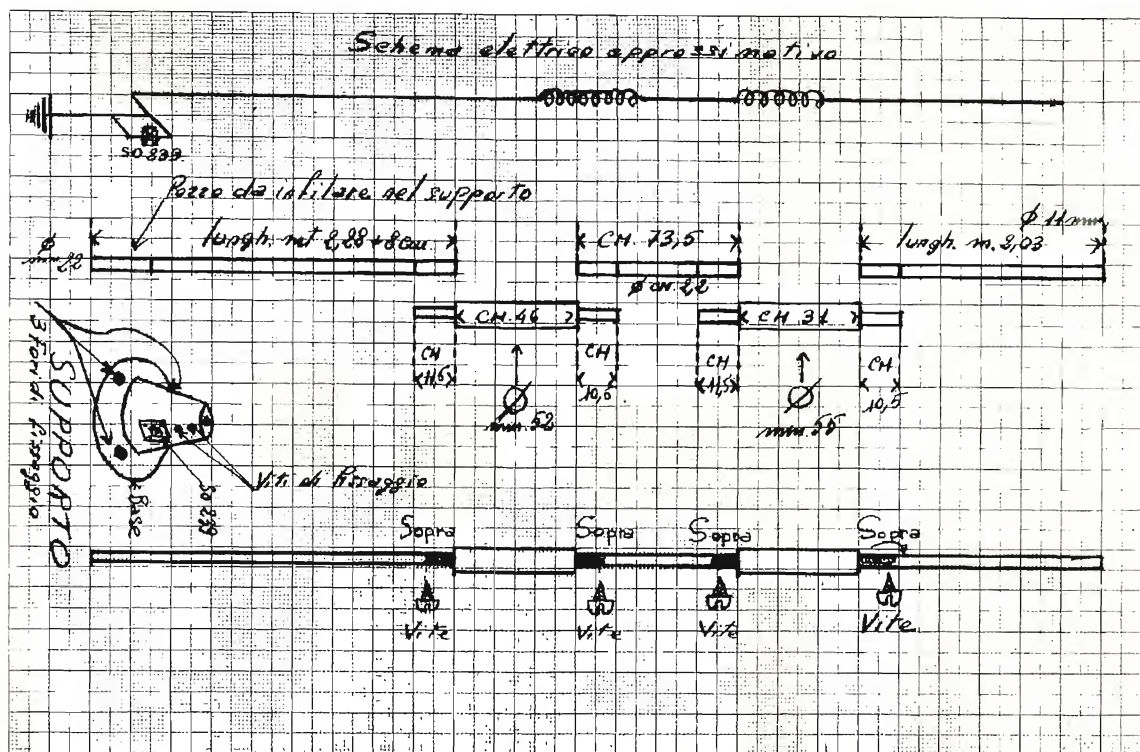 Schema elettrico approssimativo
SO 239
Pezzo da infilare nel supporto
ø 11 mm
lungh. mt 2,28 + 8 cm
CM. 73,5
lungh. m. 2,03
ø mm 22
ø cm. 2,2
CM. 46
CM 31
CM
11,5
CM
10,5
CM
11,5
CM
10,5
ø
mm. 52
ø
mm. 55
3 fori di fissaggio
SUPPORTO
Base
SO 239
Viti di fissaggio
Sopra
Sopra
Sopra
Sopra
Vite
Vite
Vite
Vite